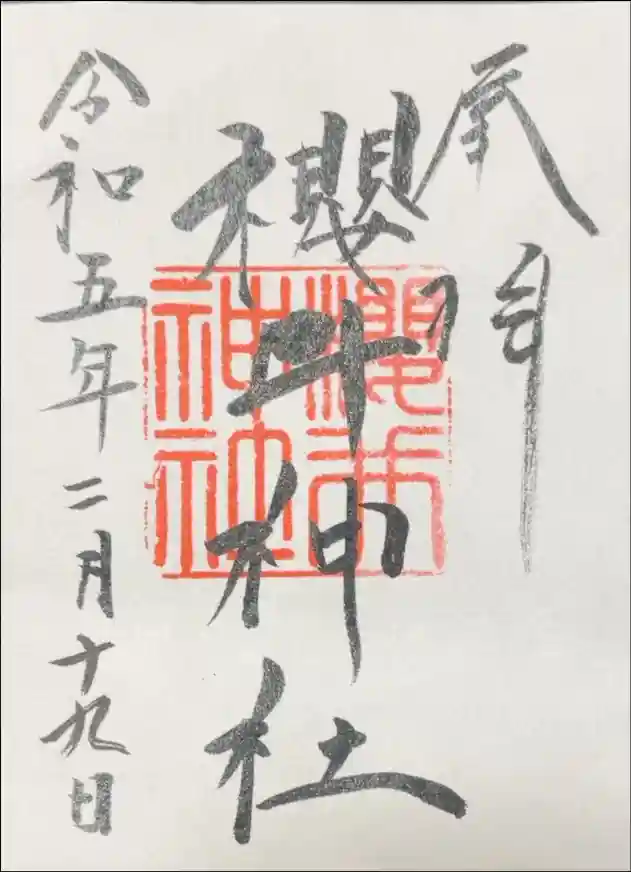 奉拝
櫻木神社
櫻木
神社
令和五年二月十九日